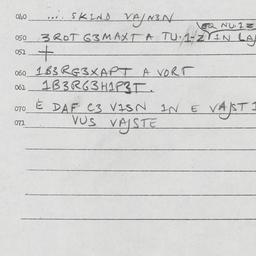 040 .... SKIND VAJN3N
050 3 ROT G3MAXT A TU.1-2 IN
051 +
060 1B3RG3XAPT A VORT
061 1B3RG3H1P3T.
070 E DAF C3 V1SN 1N E VAJST 1
071 VUS VAJSTE